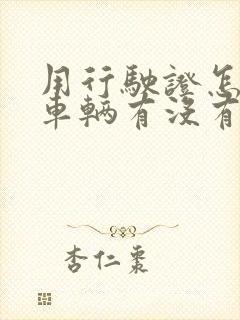 用行駛證怎
車輛有沒有
杏仁棗